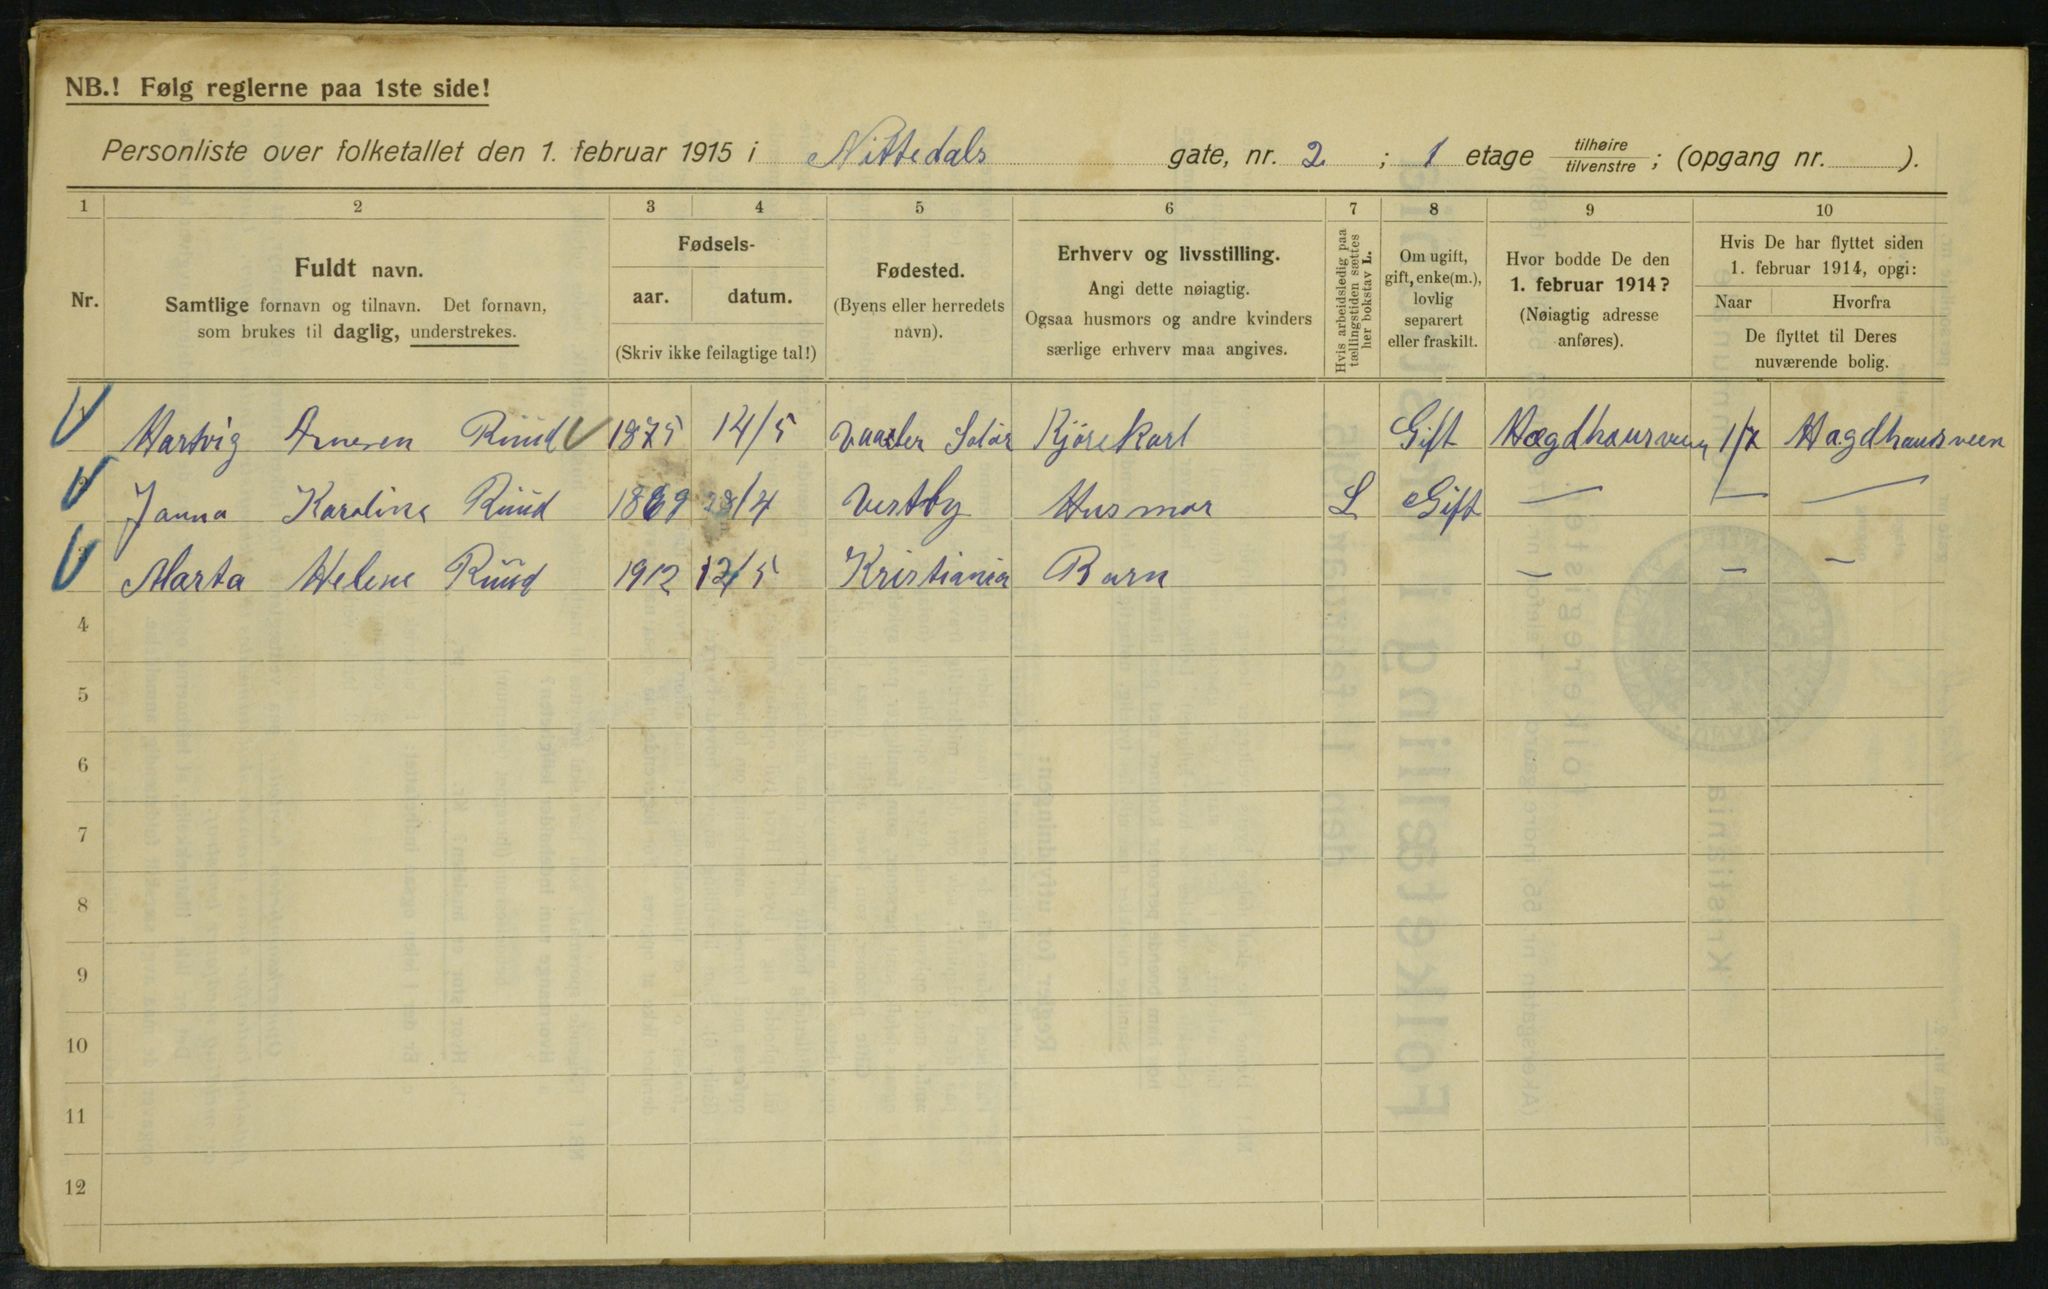 NB.! Følg reglerne paa 1ste side!
Personliste over folketallet den 1. februar 1915 i Nittedals gate, nr. 2 ; 1 etage tilhøire / tilvenstre ; (opgang nr. ).
1 2 3 4 5 6 7 8 9 10
Nr.
Fuldt navn.
Samtlige fornavn og tilnavn. Det fornavn,
som brukes til daglig, understrekes.
Fødsels-
aar. datum.
(Skriv ikke feilagtige tal!)
Fødested.
(Byens eller herredets
navn).
Erhverv og livsstilling.
Angi dette nøiagtig.
Ogsaa husmors og andre kvinders
særlige erhverv maa angives.
Hvis arbeidsledig paa
tællingstiden sættes
her bokstav L.
Om ugift,
gift, enke(m.),
lovlig
separert
eller fraskilt.
Hvor bodde De den
1. februar 1914?
(Nøiagtig adresse
anføres).
Hvis De har flyttet siden
1. februar 1914, opgi:
Naar Hvorfra
De flyttet til Deres
nuværende bolig.
Hartvig Arnesen Ruud 1875 14/5 Vaaler Solør Kjørekarl Gift Hægdhausveien 1/7 Hagdhausveen
Janna Karoline Ruud 1869 28/4 Vestby Husmor L Gift — — —
Marta Helene Ruud 1912 12/5 Kristiania Barn — — —
4
5
6
7
8
9
10
11
12